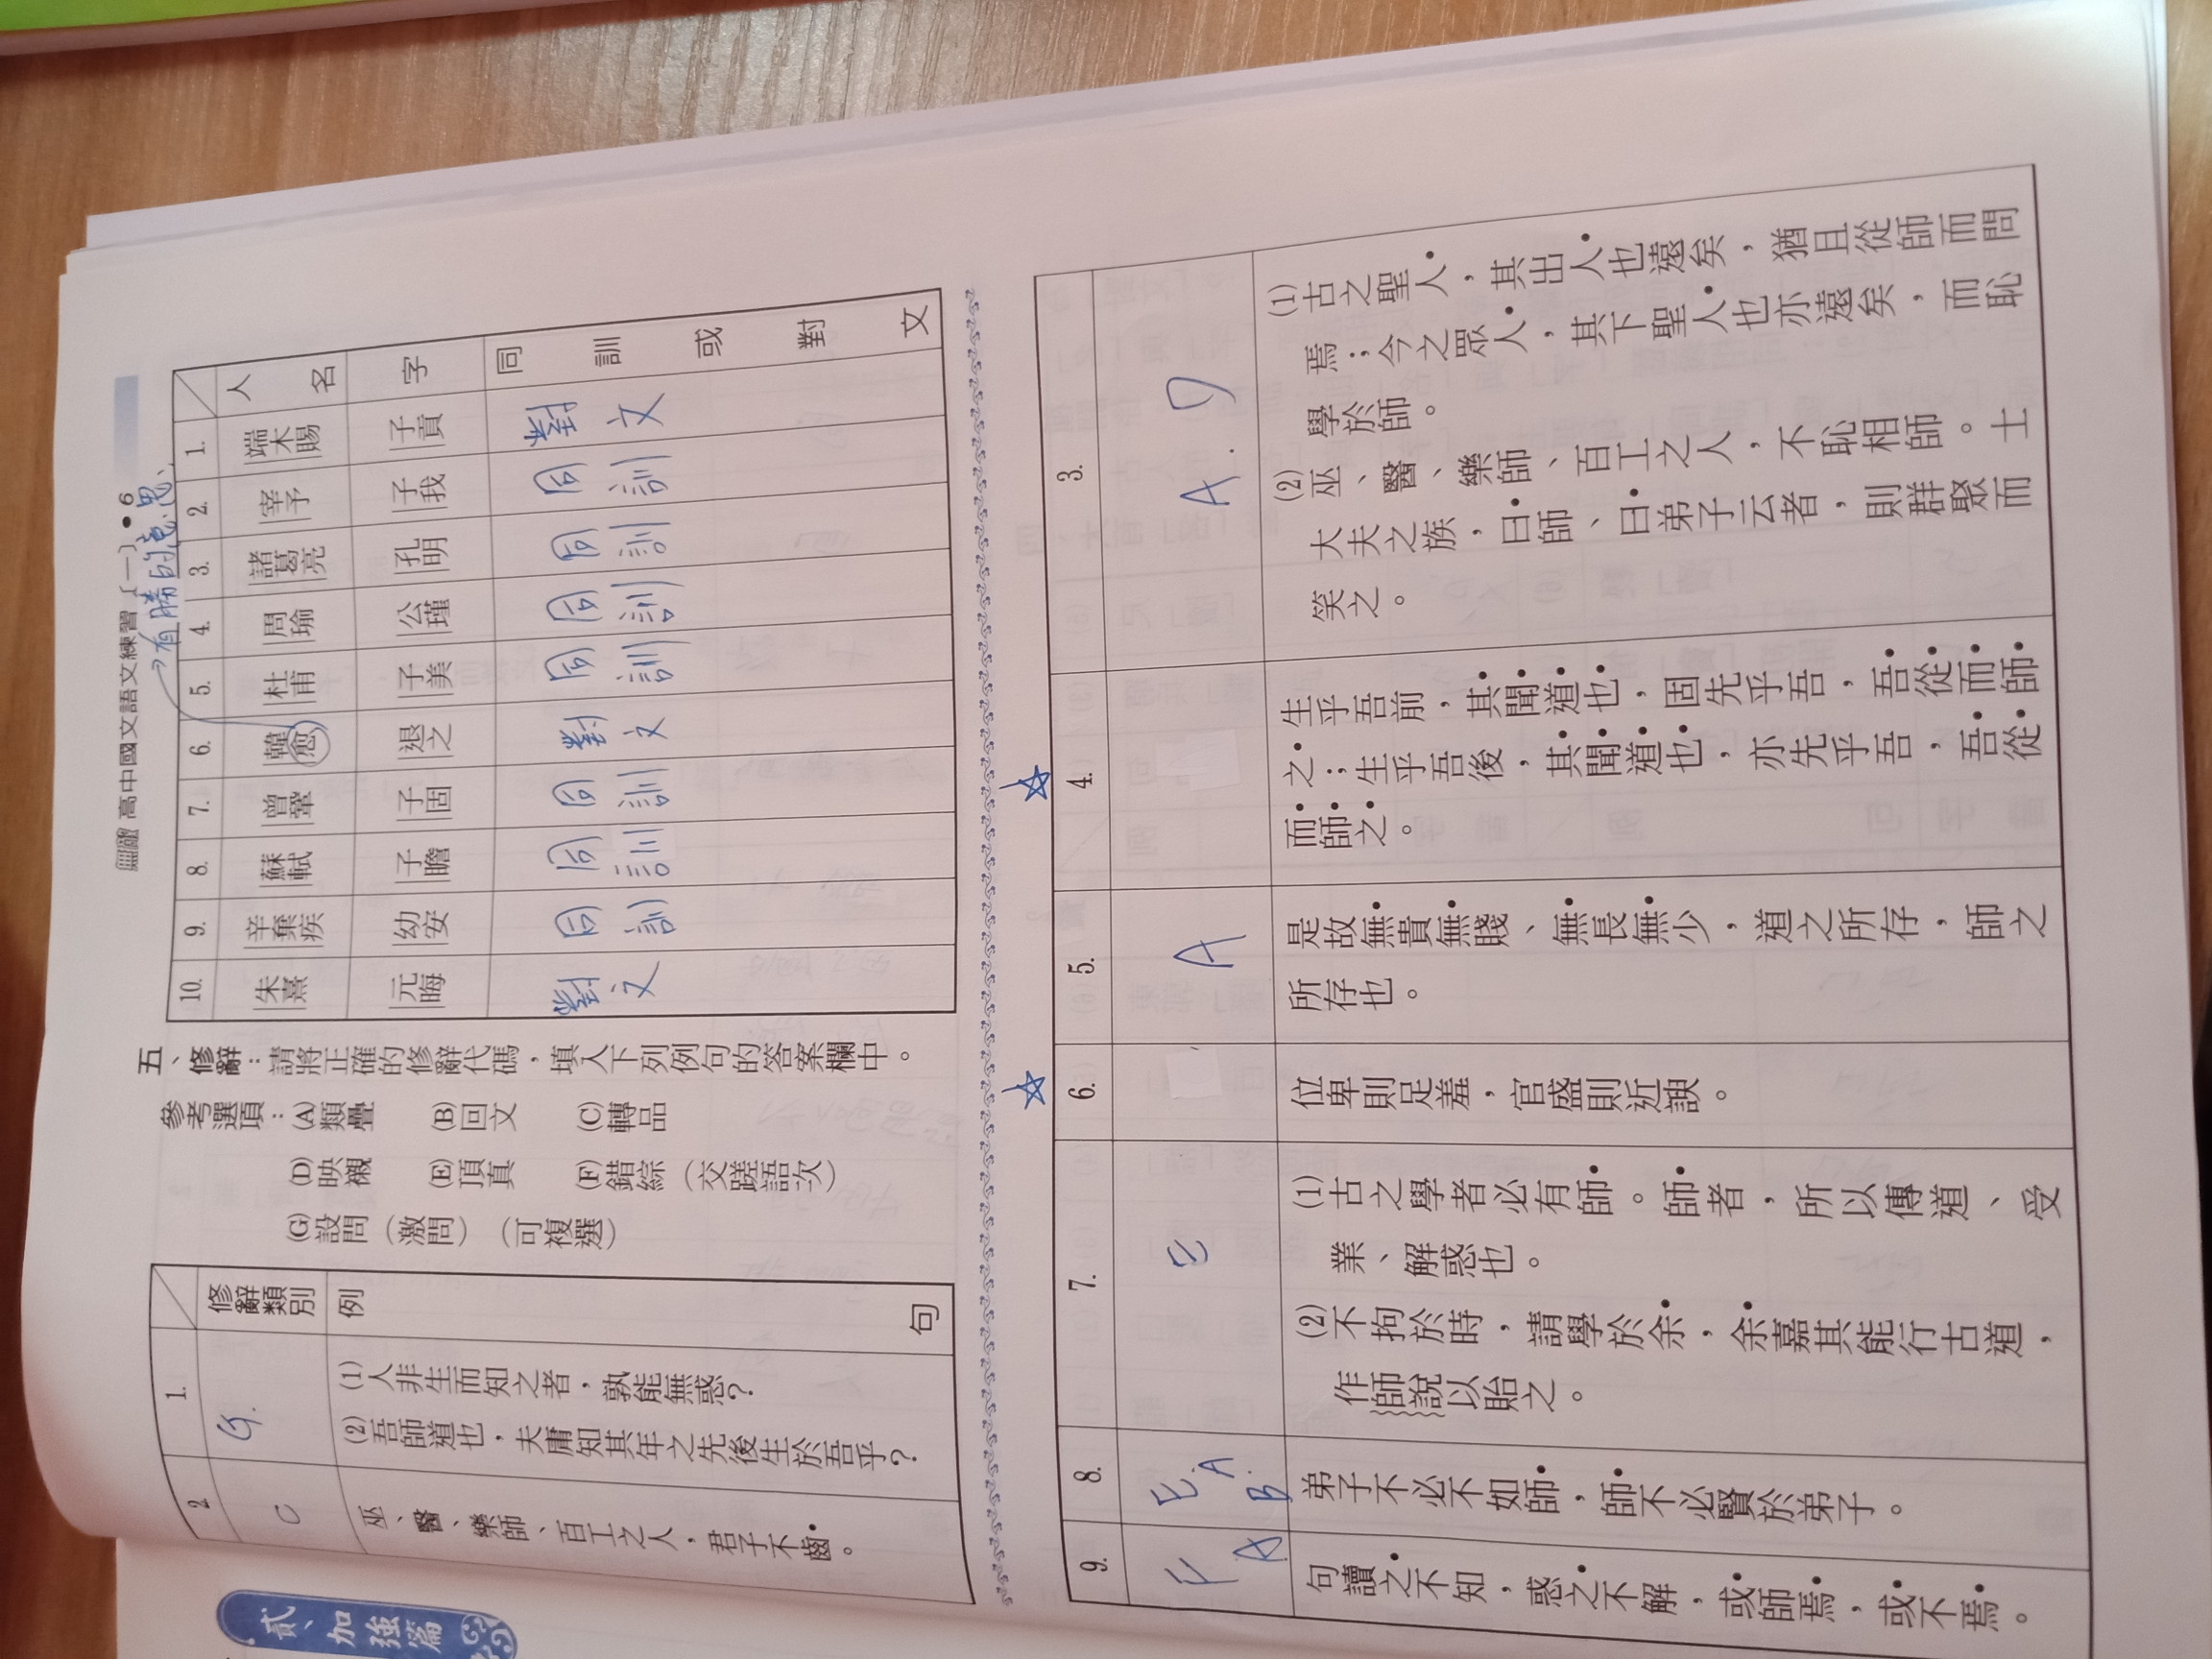 高中國文語文練習〔一〕•6
有勝的意思、
人名 字 同訓或對文
1. 端木賜 子貢 對文
2. 宰予 子我 同訓
3. 諸葛亮 孔明 同訓
4. 周瑜 公瑾 同訓
5. 杜甫 子美 同訓
6. 韓愈 退之 對文
7. 曾鞏 子固 同訓
8. 蘇軾 子瞻 同訓
9. 辛棄疾 幼安 同訓
10. 朱熹 元晦 對文
五、修辭：請將正確的修辭代碼，填入下列例句的答案欄中。
參考選項：(A)類疊 (B)回文 (C)轉品
(D)映襯 (E)頂真 (F)錯綜（交蹉語次）
(G)設問（激問）（可複選）
修辭類別 例句
1. G.
(1)人非生而知之者，孰能無惑？
(2)吾師道也，夫庸知其年之先後生於吾乎？
2 C
巫、醫、樂師、百工之人，君子不齒。
3. A. D
(1)古之聖人，其出人也遠矣，猶且從師而問
焉；今之眾人，其下聖人也亦遠矣，而恥
學於師。
(2)巫、醫、樂師、百工之人，不恥相師。士
大夫之族，曰師、曰弟子云者，則群聚而
笑之。
☆ 4.
生乎吾前，其聞道也，固先乎吾，吾從而師
之；生乎吾後，其聞道也，亦先乎吾，吾從
而師之。
5. A
是故無貴無賤、無長無少，道之所存，師之
所存也。
☆ 6.
位卑則足羞，官盛則近諛。
7. E
(1)古之學者必有師。師者，所以傳道、受
業、解惑也。
(2)不拘於時，請學於余，余嘉其能行古道，
作師說以貽之。
8. E. A. B
弟子不必不如師，師不必賢於弟子。
9. F A
句讀之不知，惑之不解，或師焉，或不焉。
貳、加強篇